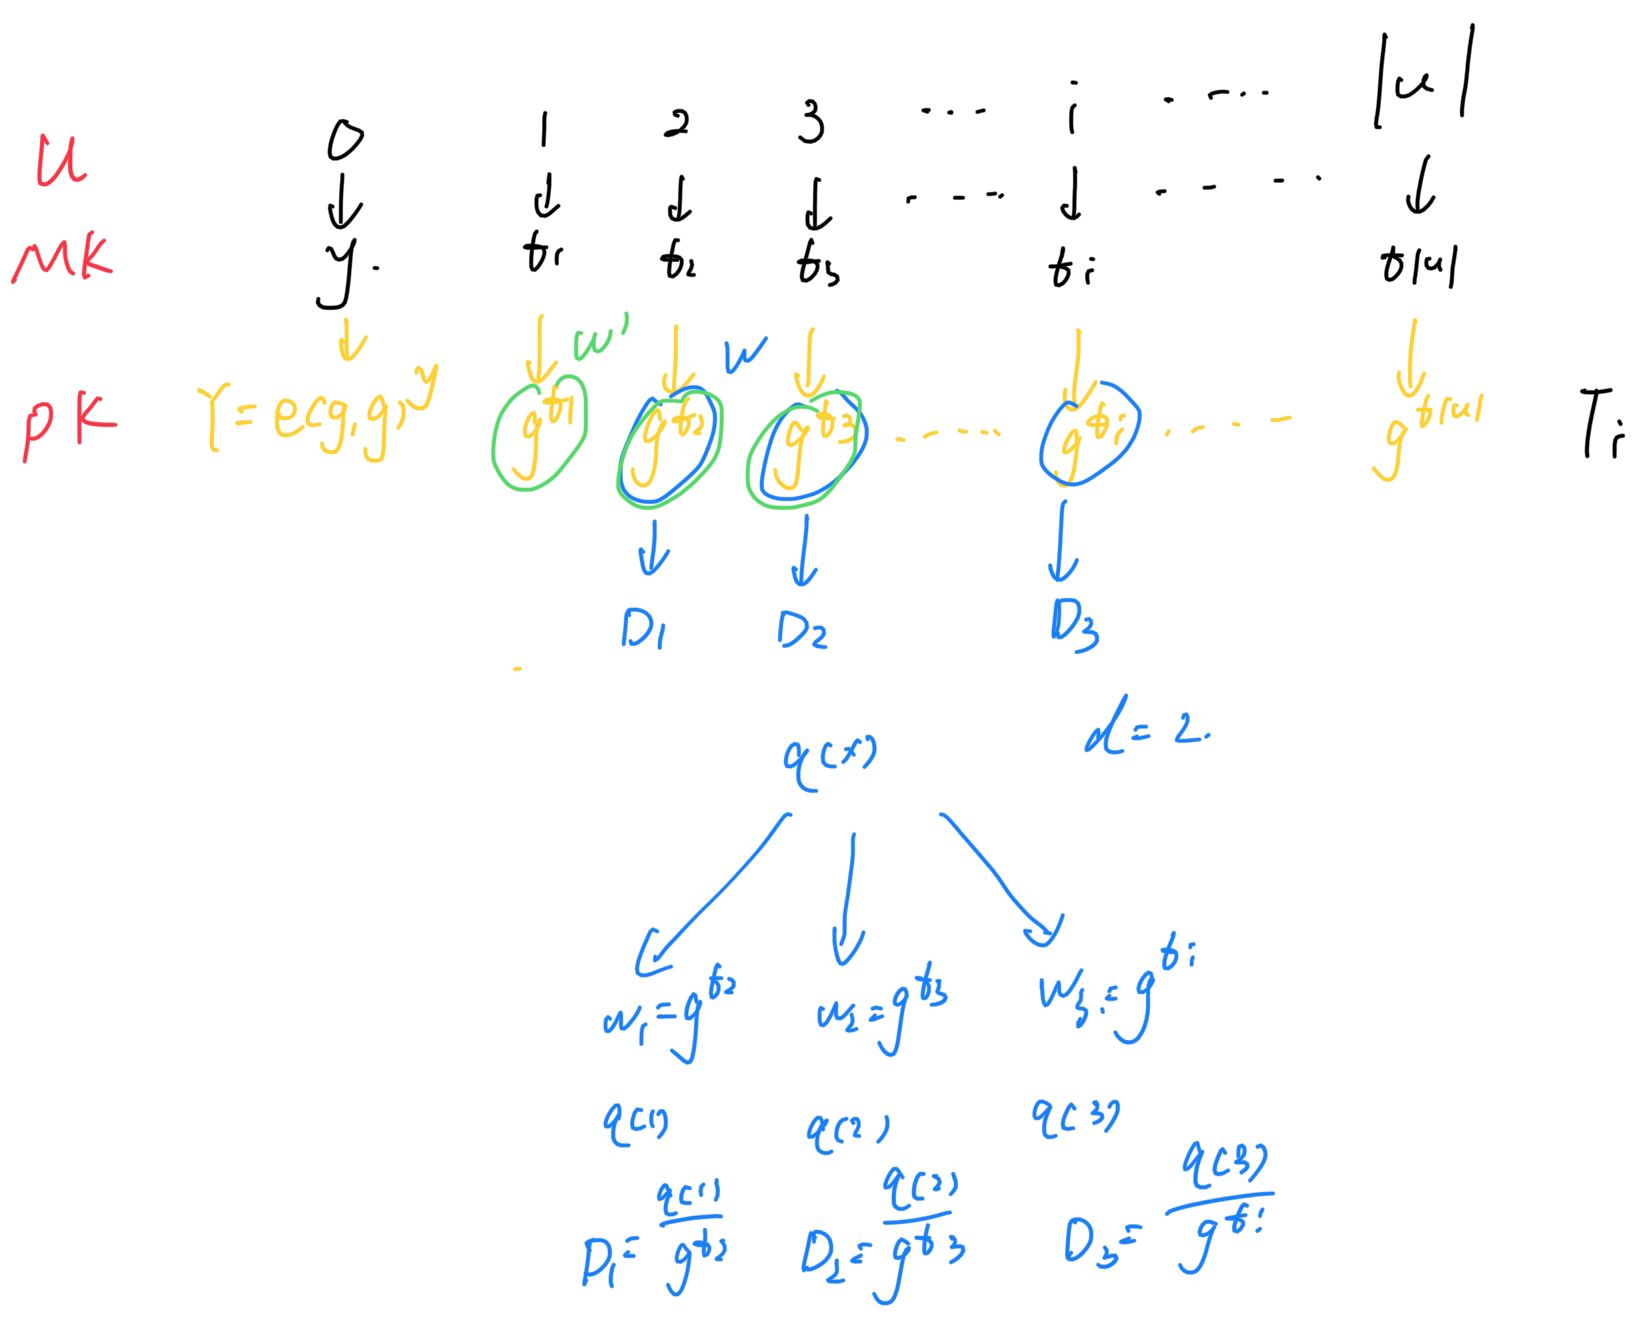 U 0 1 2 3 ... i ..... |u|
MK y. t1 t2 t3 .... ti ..... t|u|
w' w
PK Y=e(g,g)^y g^t1 g^t2 g^t3 ..... g^ti ..... g^t|u| Ti
D1 D2 D3
d=2.
q(x)
w1=g^t2 w2=g^t3 w3=g^ti
q(1) q(2) q(3)
D1=q(1)/g^t2 D2=q(2)/g^t3 D3=q(3)/g^ti